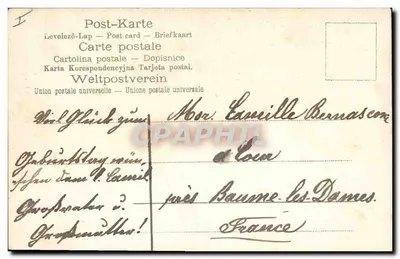 I
Post-Karte
Levelező-Lap — Post card — Briefkaart
Carte postale
Cartolina postale — Dopisnice
Karta Korespondencyjna Tarjeta postal.
Weltpostverein
Union postale universelle — Unione postale universale
Viel Glück zum
Geburtstag wün-
schen dem l. Camil.
Großvater u.
Großmutter!
Mor. Camille Bernascon
à Cour
près Baume-les-Dames.
France
CPAPHIL